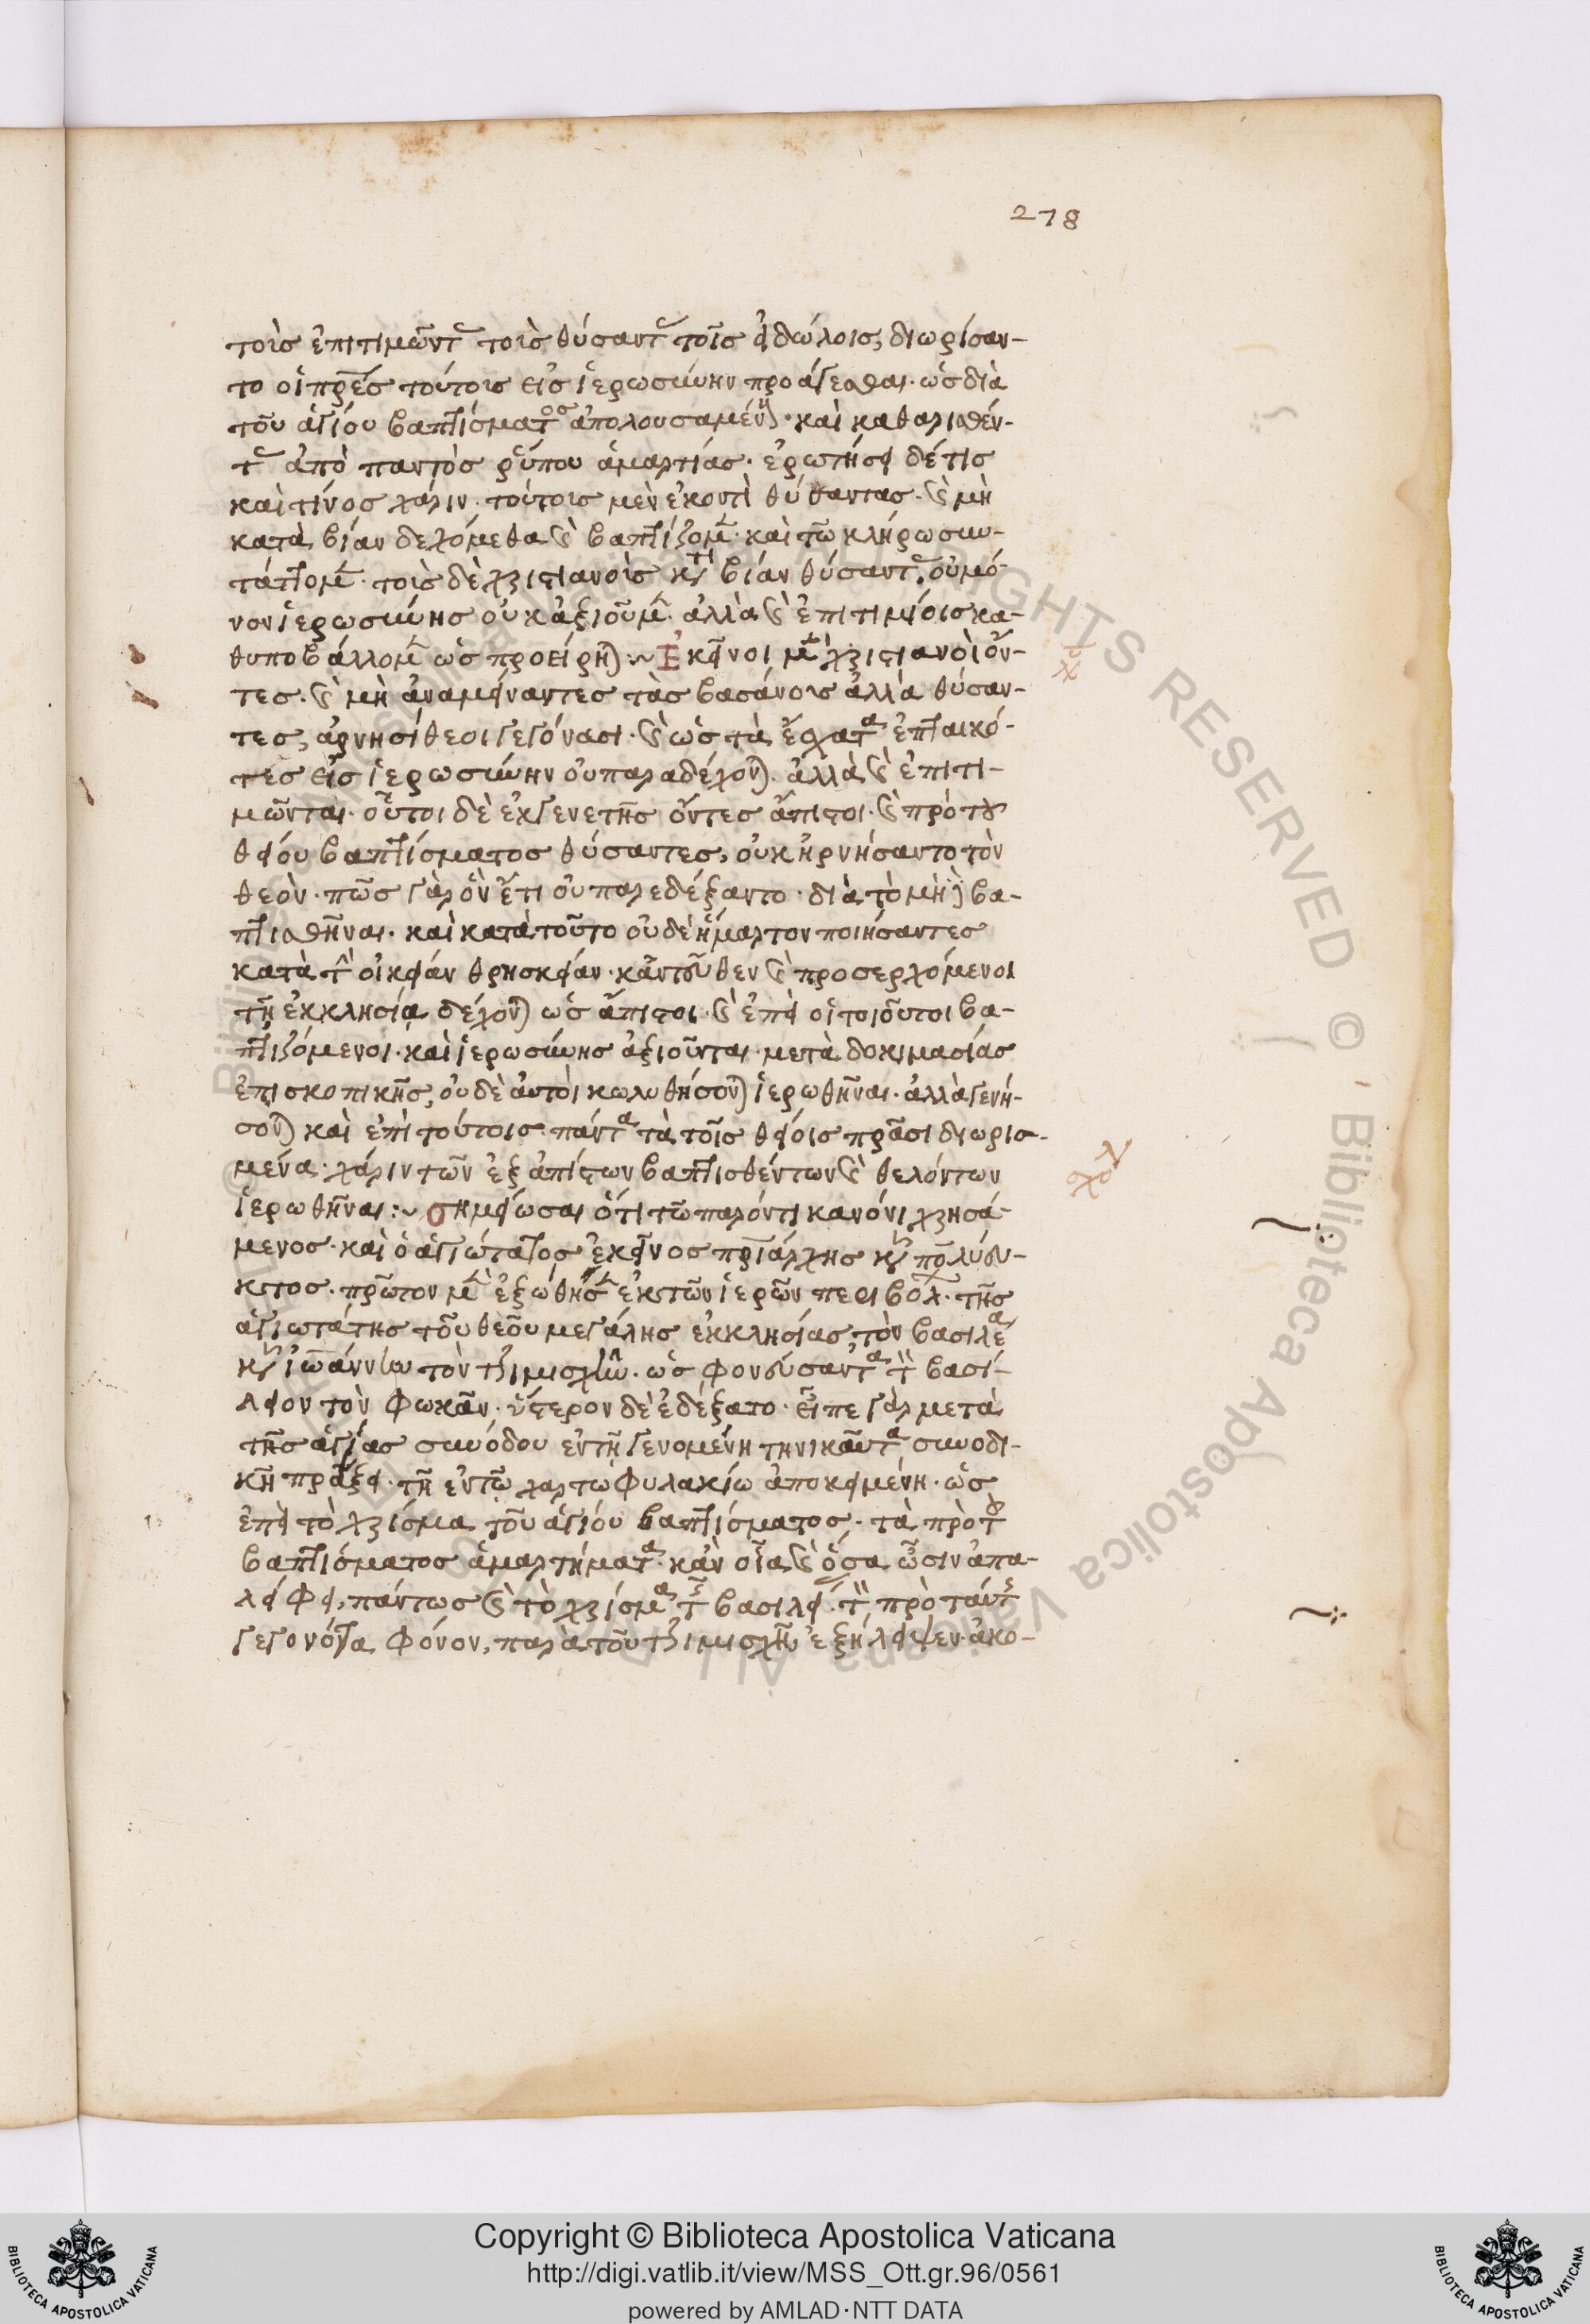 278
τοὺς ἐπιτιμῶντ τοὺς θύσαντ τοῖς εἰδώλοις, διωρίσαν-
το οἱ πρες τούτους εἰς ἱερωσύνην προάγεσθαι· ὡς διὰ
τοῦ ἁγίου βαπτίσματος ἀπολουσαμένους· καὶ καθαρισθέν-
τ ἀπὸ παντὸς ῥύπου ἁμαρτίας· ἐρωτήσει δέ τις
καὶ τίνος χάριν· τούτους μὲν ἑκοντὶ θύσαντας· καὶ μὴ
κατὰ βίαν δεχόμεθα καὶ βαπτίζομ· καὶ τῶ κλήρω συν-
τάττομ· τοὺς δὲ χριστιανοὺς κατὰ βίαν θύσαντ· οὐ μό-
νον ἱερωσύνης οὐκ ἀξιοῦμ· ἀλλὰ καὶ ἐπιτιμίοις κα-
θυποβάλλομ ὡς προείρηται:~ Ἐκεῖνοι μὲν χριστιανοὶ ὄν-
τες· καὶ μὴ ἀναμείναντες τὰς βασάνους ἀλλὰ θύσαν-
τες, ἀρνησίθεοι γεγόνασι· καὶ ὡς τὰ ἔσχατα ἐπταικό-
τες εἰς ἱερωσύνην οὐ παραδέχονται· ἀλλὰ καὶ ἐπιτι-
μῶνται· οὗτοι δὲ ἐκ γενετῆς ὄντες ἄπιστοι· καὶ πρὸ τοῦ
θείου βαπτίσματος θύσαντες, οὐκ ἠρνήσαντο τὸν
θεὸν· πῶς γὰρ ὃν ἔτι οὐ παρεδέξαντο· διὰ τὸ μὴ βα-
πτισθῆναι· καὶ κατὰ τοῦτο οὐδὲ ἥμαρτον ποιήσαντες
κατὰ τὴν οἰκείαν θρησκείαν· κἀντεῦθεν καὶ προσερχόμενοι
τῆ ἐκκλησία δέχονται ὡς ἄπιστοι· καὶ ἐπεὶ οἱ τοιοῦτοι βα-
πτιζόμενοι· καὶ ἱερωσύνης ἀξιοῦνται· μετὰ δοκιμασίας
ἐπισκοπικῆς, οὐδὲ αὐτοὶ κωλυθήσονται ἱερωθῆναι· ἀλλὰ γενή-
σονται καὶ ἐπὶ τούτοις· πάντα τὰ τοῖς θείοις πρασι διωρισ-
μένα· χάριν τῶν ἐξ ἀπίστων βαπτισθέντων καὶ θελόντων
ἱερωθῆναι:~ σημείωσαι ὅτι τῶ παρόντι κανόνι χρησά-
μενος· καὶ ὁ ἁγιώτατος ἐκεῖνος πριάρχης κὺρ πολύευ-
κτος· πρῶτον μὲν ἐξωθήσας ἐκ τῶν ἱερῶν περιβόλ· τῆς
ἁγιωτάτης τοῦ θεοῦ μεγάλης ἐκκλησίας, τὸν βασιλέα
κὺρ ἰωάννην τὸν τζιμισχῆν· ὡς φονεύσαντα τὸν βασι-
λέον τὸν φωκᾶν· ὕστερον δὲ ἐδέξατο· εἶπε γὰρ μετὰ
τῆς ἁγίας συνόδου ἐν τῆ γενομένη τηνικαῦτα συνοδι-
κῆ πράξει· τῆ ἐν τῶ χαρτωφυλακίω ἀποκειμένη· ὡς
ἐπεὶ τὸ χρίσμα τοῦ ἁγίου βαπτίσματος· τὰ πρὸ τοῦ
βαπτίσματος ἁμαρτήματα· κἂν οἷα καὶ ὅσα ὦσιν ἀπα-
λείφει, πάντως καὶ τὸ χρίσμα τῆς βασιλεί· τὸν πρὸ ταύτης
γεγονότα φόνον, παρὰ τοῦ τζιμισχῆ ἐξήλειψεν· ἀκο-
Copyright © Biblioteca Apostolica Vaticana
http://digi.vatlib.it/view/MSS_Ott.gr.96/0561
powered by AMLAD·NTT DATA